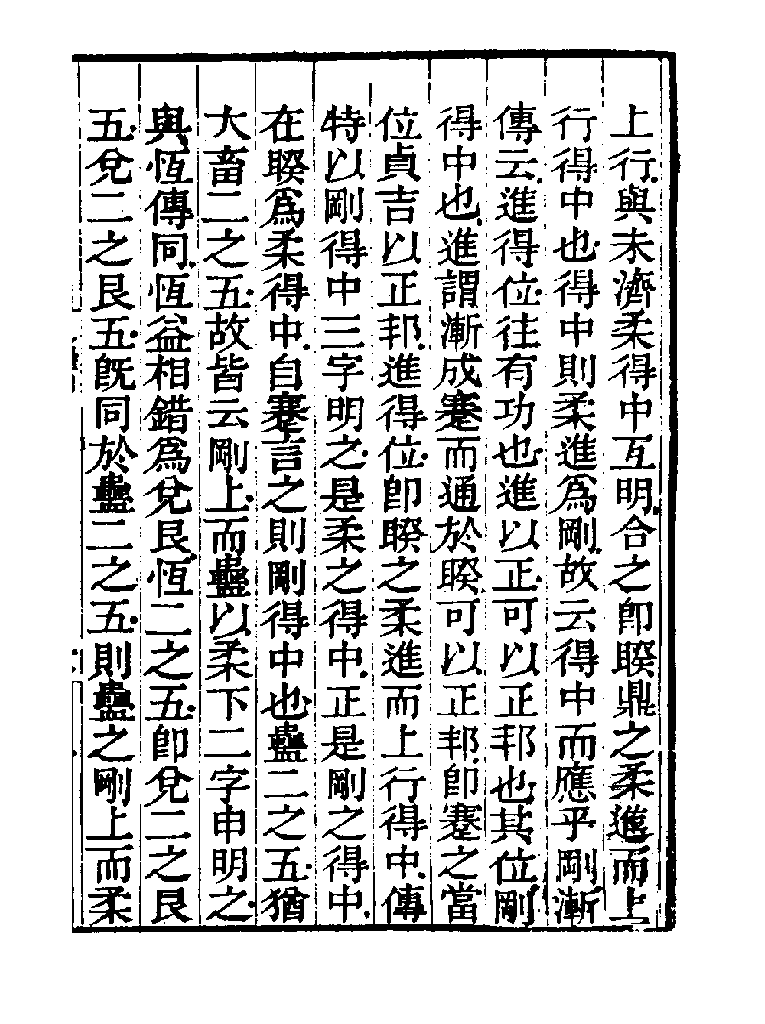 上行與未濟柔得中互明合之卽睽鼎之柔進而上
行得中也得中則柔進爲剛故云得中而應乎剛漸
傳云進得位往有功也進以正可以正邦也其位剛
得中也進謂漸成蹇而通於睽可以正邦卽蹇之當
位貞吉以正邦進得位卽睽之柔進而上行得中傳
特以剛得中三字明之是柔之得中正是剛之得中
在睽爲柔得中自蹇言之則剛得中也蠱二之五猶
大畜二之五故皆云剛上而蠱以柔下二字申明之
與恆傳同恆益相錯爲兌艮恆二之五卽兌二之艮
五兌二之艮五旣同於蠱二之五則蠱之剛上而柔